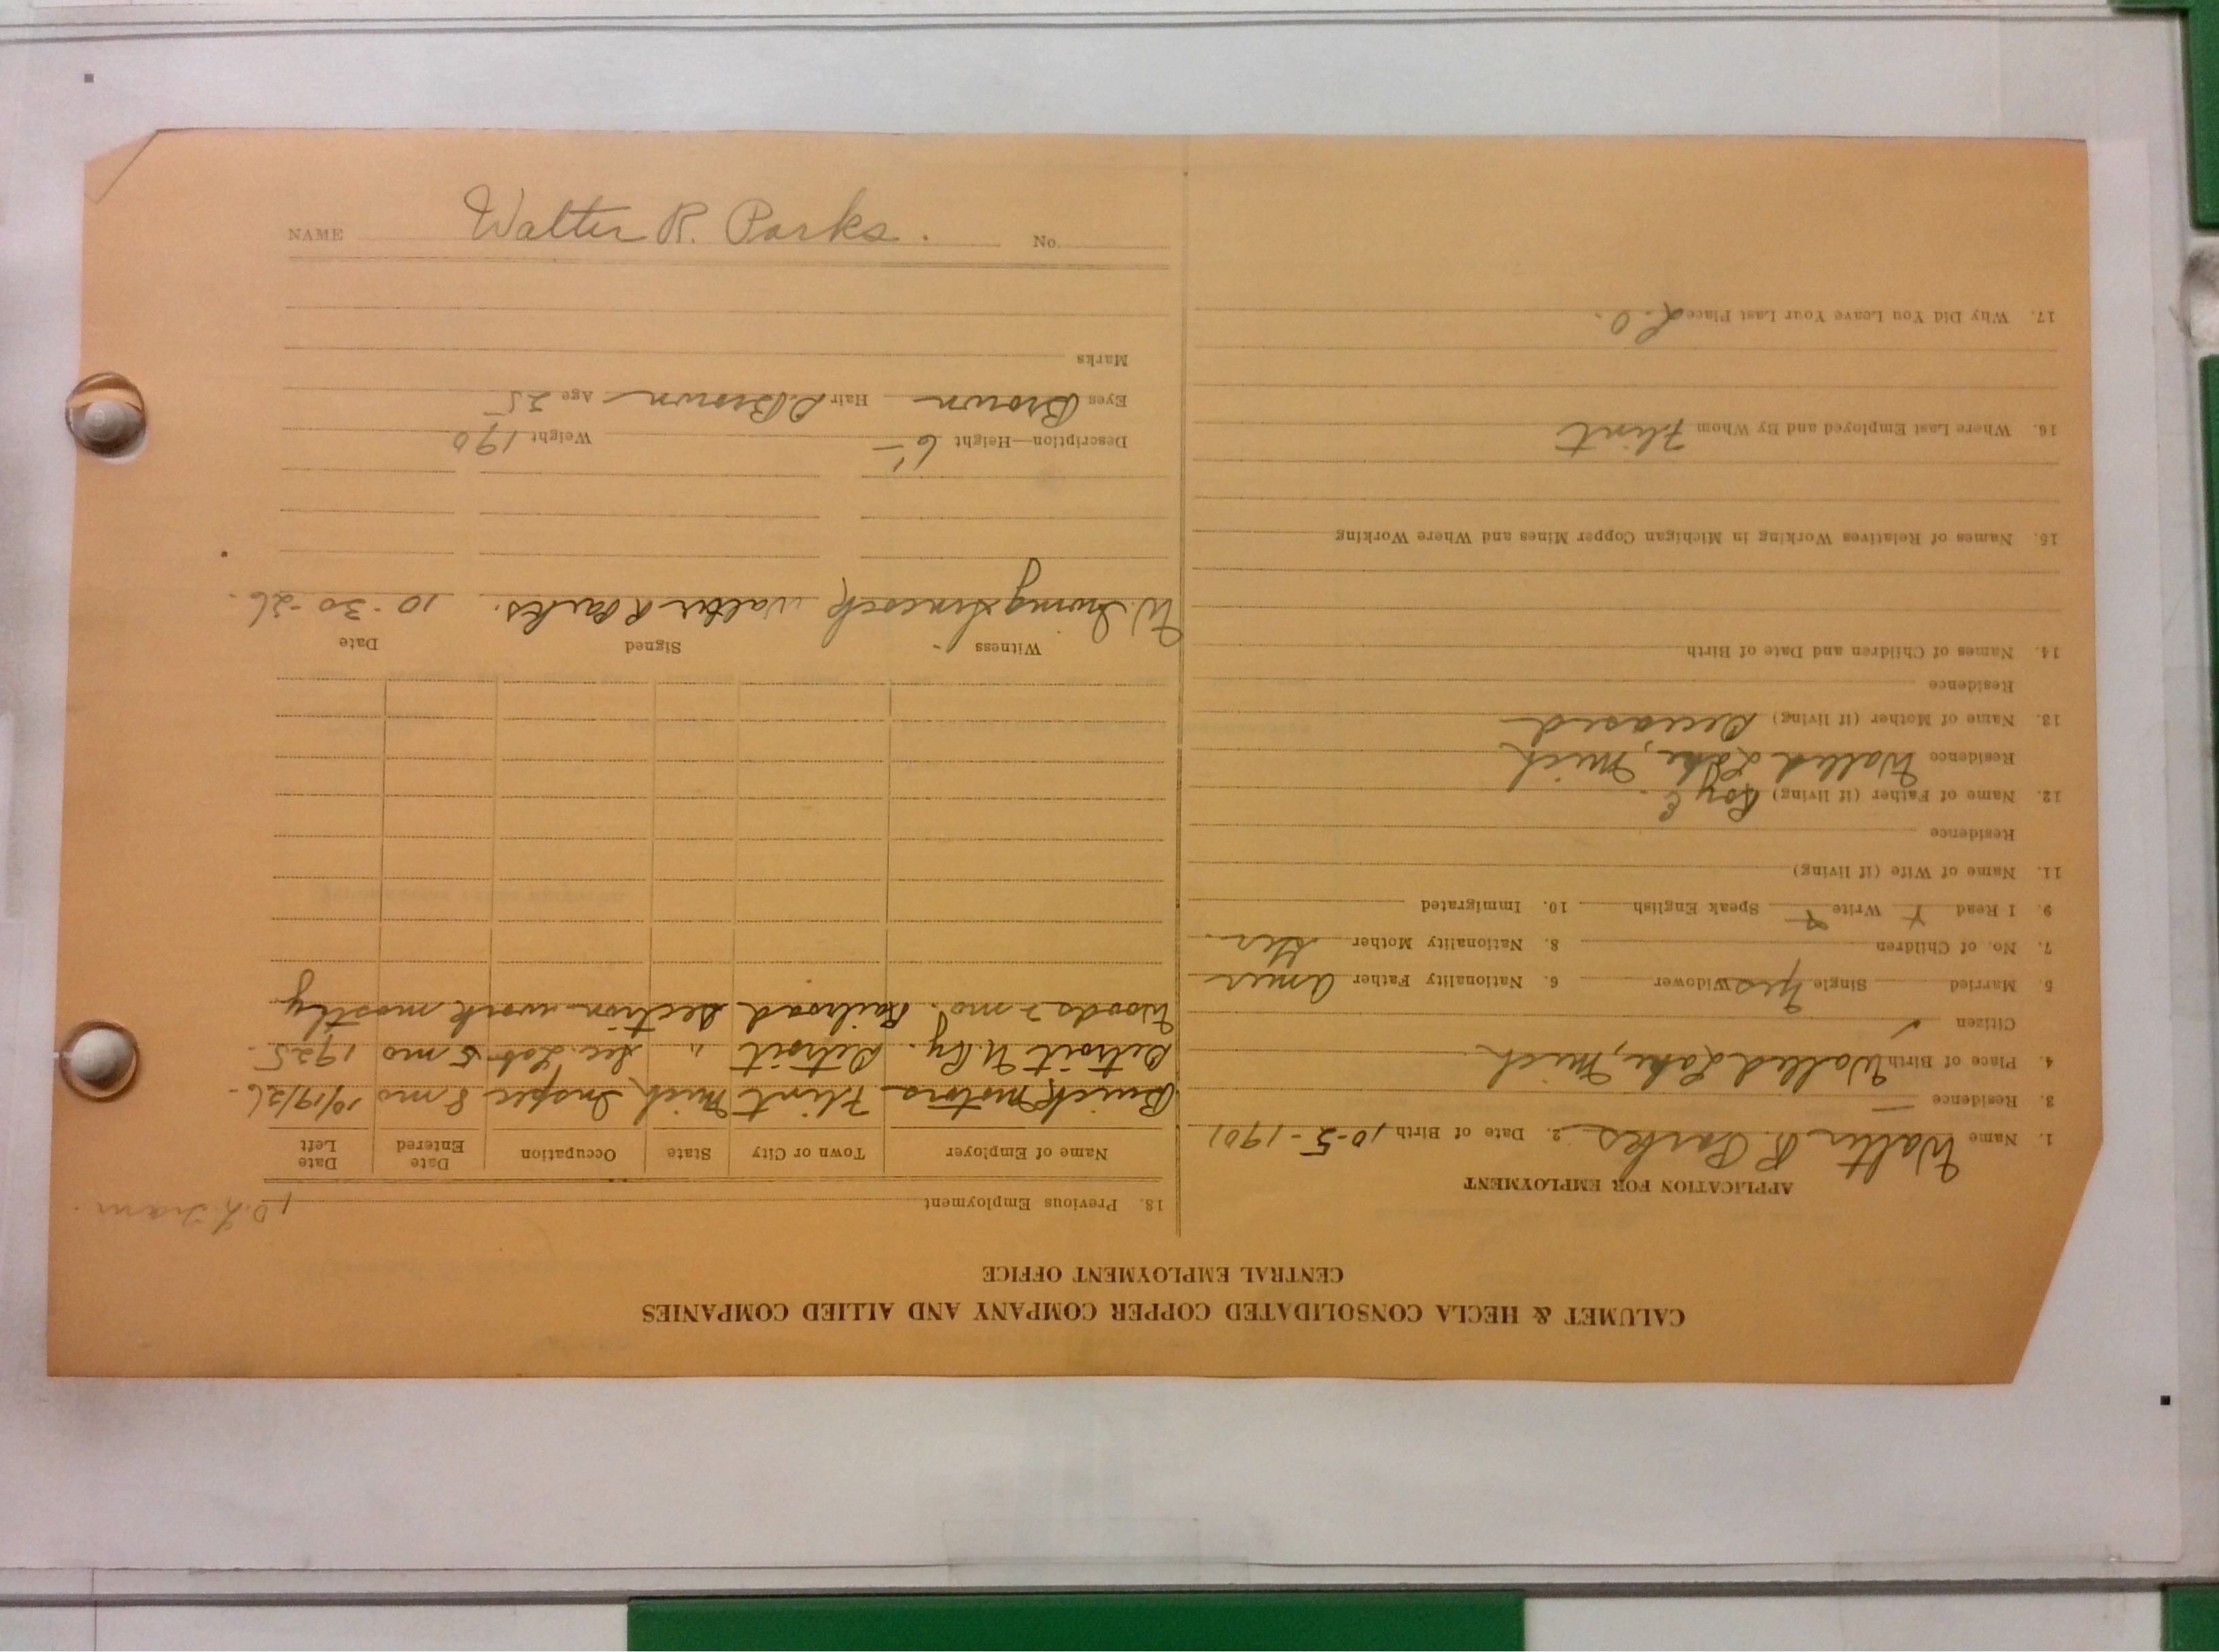 CALUMET & HECLA CONSOLIDATED COPPER COMPANY AND ALLIED COMPANIES
CENTRAL EMPLOYMENT OFFICE
APPLICATION FOR EMPLOYMENT
1. Name Walter R. Parks 2. Date of Birth 10-5-1901
3. Residence —
4. Place of Birth Walled Lake, Mich
Citizen ✓
5. Married Single Yes Widower 6. Nationality Father Amer
7. No. of Children 8. Nationality Mother Ger
9. I Read Y Write Y Speak English 10. Immigrated
11. Name of Wife (if living)
Residence
12. Name of Father (if living) Roy E.
Residence Walled Lake, Mich
13. Name of Mother (if living) Deceased
Residence
14. Names of Children and Date of Birth
15. Names of Relatives Working in Michigan Copper Mines and Where Working
16. Where Last Employed and By Whom Flint
17. Why Did You Leave Your Last Place L.O.
18. Previous Employment
Name of Employer Town or City State Occupation Date Entered Date Left
Buick Motors Flint Mich Inspec 8 mo 10/19/26.
Detroit U. Ry. Detroit " Sec. Lab 5 mo 1925.
Woods 2 mo. Railroad section work mostly
Witness Signed Date
W. Irving Walter R Parks. 10-30-26.
Description—Height 6' Weight 190
Eyes Brown Hair D. Brown Age 25
Marks
NAME Walter R. Parks. No.